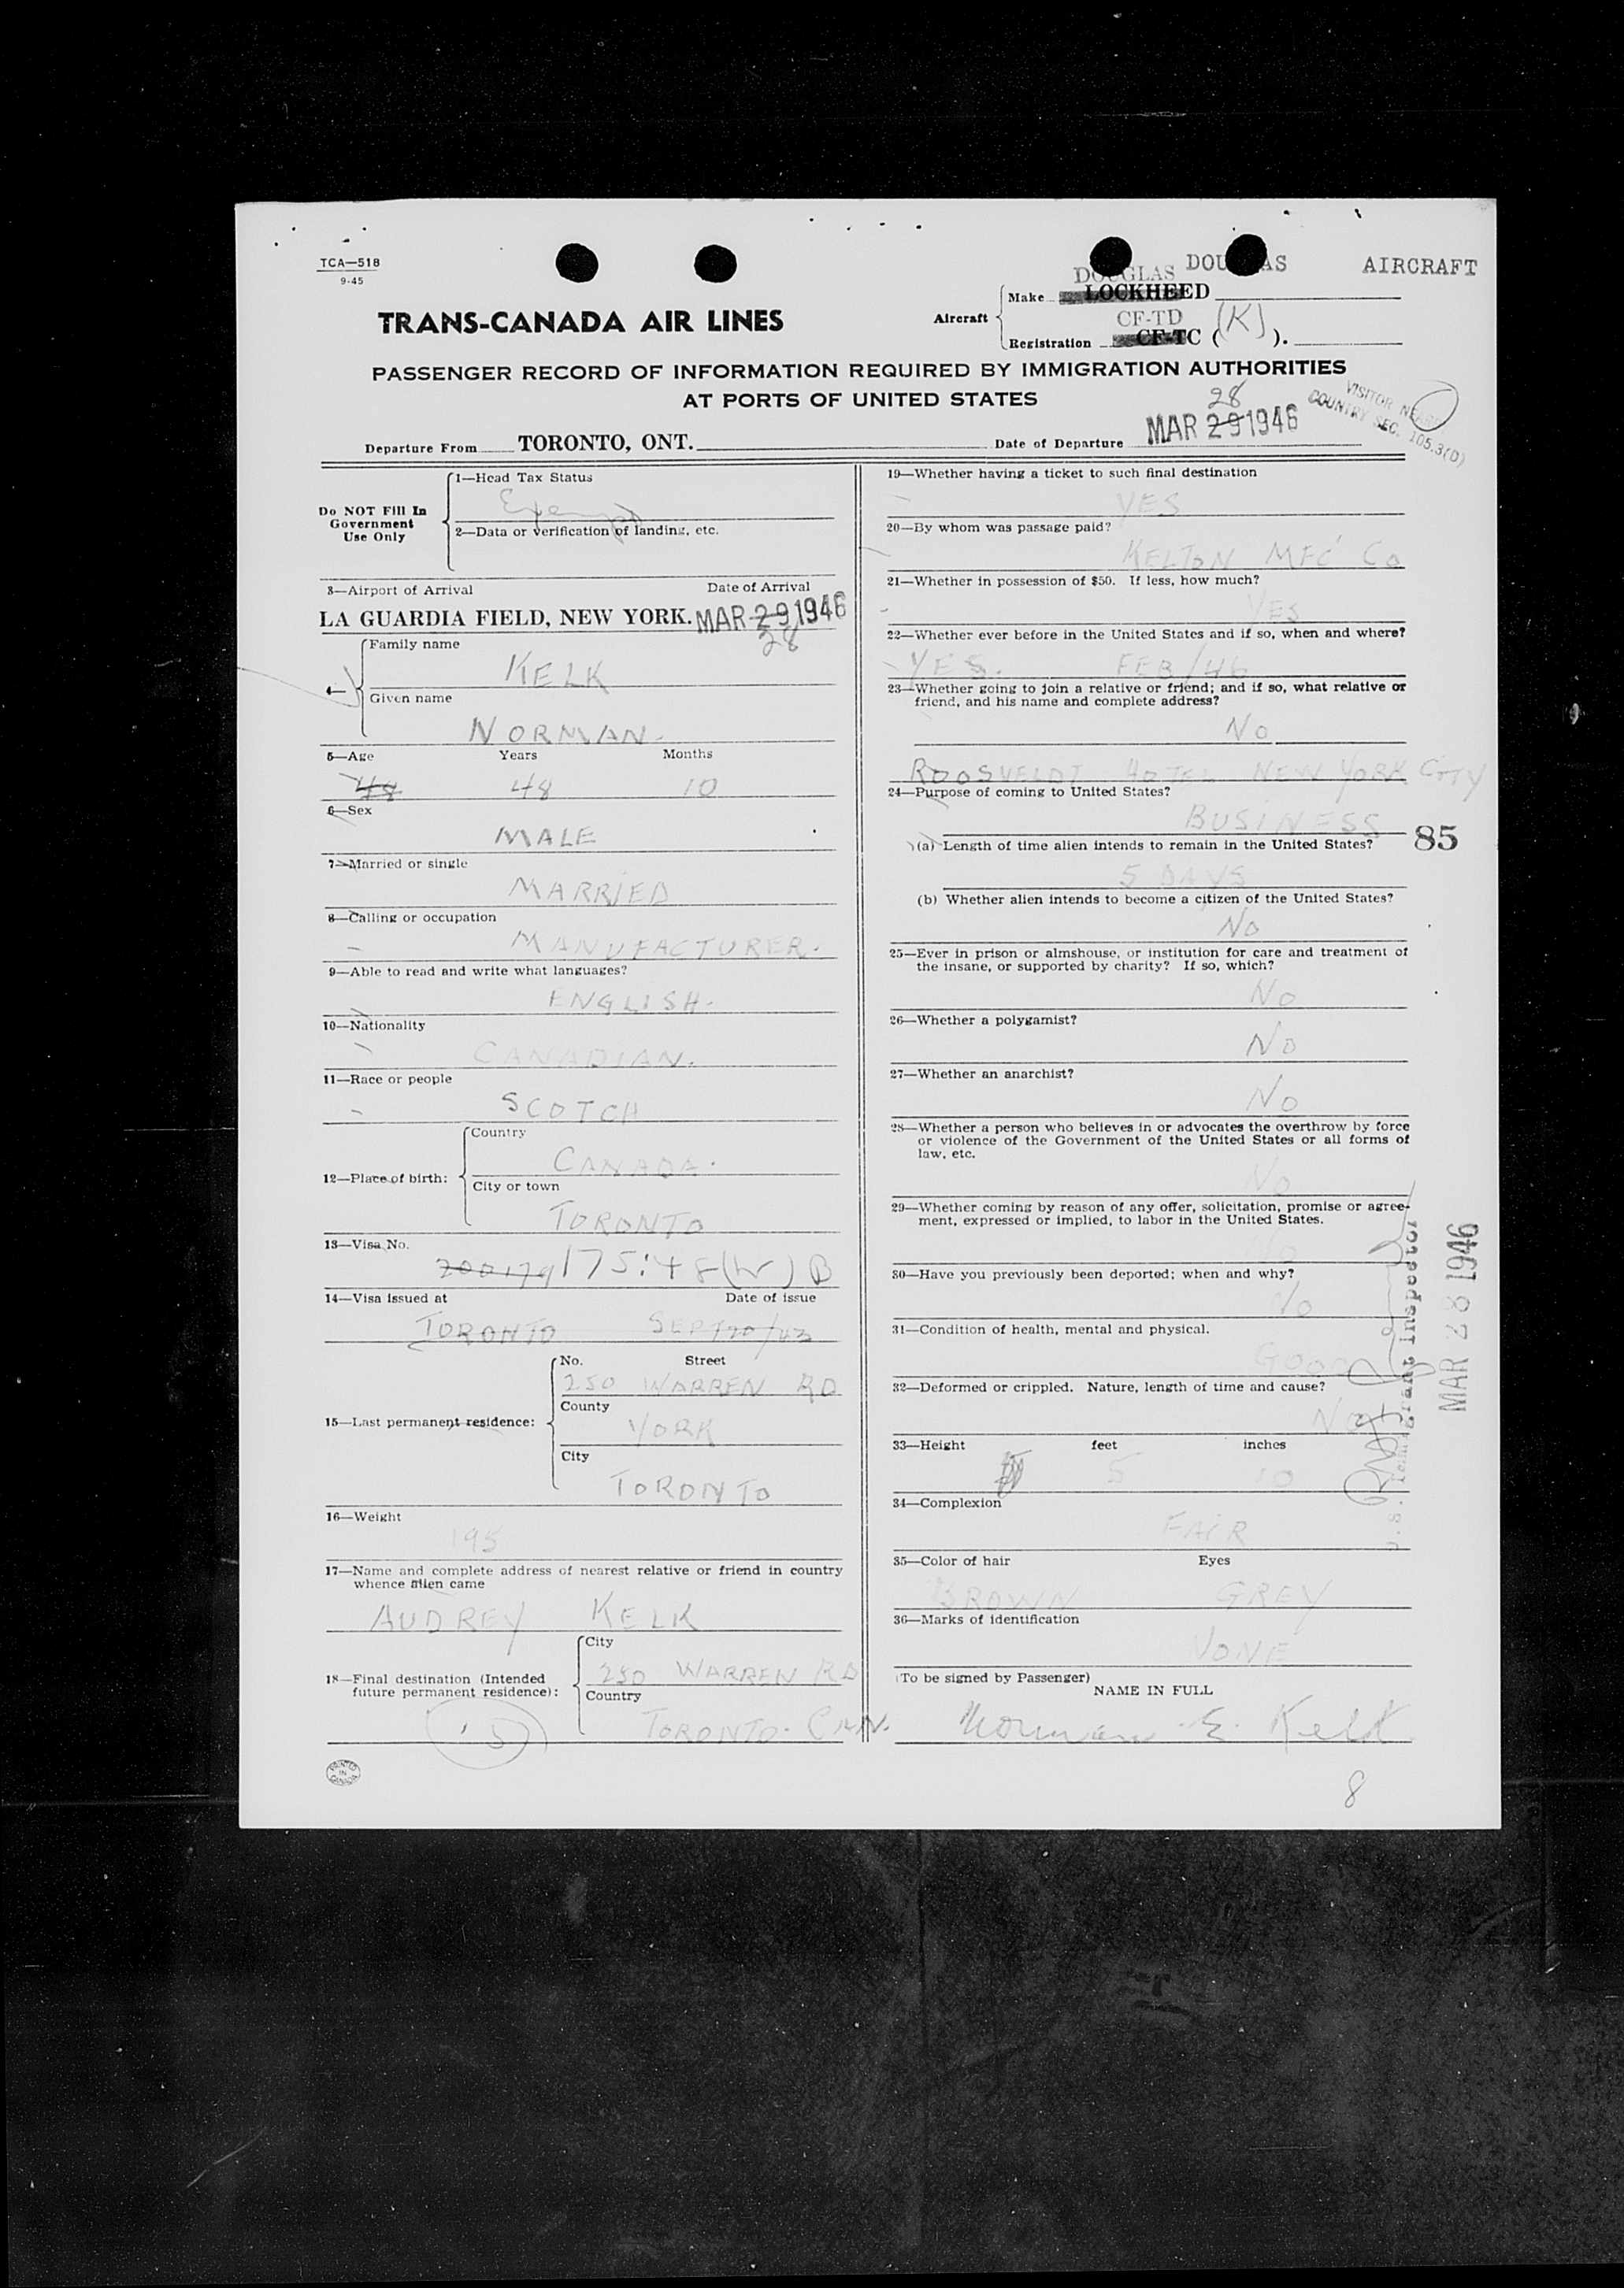 TCA—518
9-45
DOUGLAS DOUGLAS AIRCRAFT
Make LOCKHEED
TRANS-CANADA AIR LINES
Aircraft
CF-TD
Registration CF-TC (K).
PASSENGER RECORD OF INFORMATION REQUIRED BY IMMIGRATION AUTHORITIES
AT PORTS OF UNITED STATES
28
VISITOR
COUNTRY SEC. 105.3(D)
Departure From TORONTO, ONT. Date of Departure MAR 29 1946
Do NOT Fill In
Government
Use Only
1—Head Tax Status
Exempt
2—Data or verification of landing, etc.
3—Airport of Arrival Date of Arrival
LA GUARDIA FIELD, NEW YORK. MAR 29 1946
28
4—
Family name
KELK
Given name
NORMAN.
5—Age Years Months
48 48 10
6—Sex
MALE
7—Married or single
MARRIED
8—Calling or occupation
MANUFACTURER.
9—Able to read and write what languages?
ENGLISH.
10—Nationality
CANADIAN.
11—Race or people
SCOTCH
12—Place of birth:
Country
CANADA.
City or town
TORONTO
13—Visa No.
200179 175:48(W) B
14—Visa issued at Date of issue
TORONTO SEPT 20/43
15—Last permanent residence:
No. Street
250 WARREN RD
County
YORK
City
TORONTO
16—Weight
195
17—Name and complete address of nearest relative or friend in country
whence alien came
AUDREY KELK
18—Final destination (Intended
future permanent residence):
City
250 WARREN RD
Country
TORONTO. CAN.
5
PRINTED
IN
CANADA
19—Whether having a ticket to such final destination
YES
20—By whom was passage paid?
KELTON MFG Co
21—Whether in possession of $50. If less, how much?
YES
22—Whether ever before in the United States and if so, when and where?
YES. FEB/46
23—Whether going to join a relative or friend; and if so, what relative or
friend, and his name and complete address?
No
ROOSVELDT HOTEL NEW YORK CITY
24—Purpose of coming to United States?
BUSINESS
85
(a) Length of time alien intends to remain in the United States?
5 DAYS
(b) Whether alien intends to become a citizen of the United States?
No
25—Ever in prison or almshouse, or institution for care and treatment of
the insane, or supported by charity? If so, which?
No
26—Whether a polygamist?
No
27—Whether an anarchist?
No
28—Whether a person who believes in or advocates the overthrow by force
or violence of the Government of the United States or all forms of
law, etc.
No
29—Whether coming by reason of any offer, solicitation, promise or agree-
ment, expressed or implied, to labor in the United States.
No
30—Have you previously been deported; when and why?
No
31—Condition of health, mental and physical.
GOOD
32—Deformed or crippled. Nature, length of time and cause?
No
33—Height feet inches
5 10
34—Complexion
FAIR
35—Color of hair Eyes
BROWN GREY
36—Marks of identification
NONE
(To be signed by Passenger)
NAME IN FULL
Norman E. Kelk
8
U.S. Immigrant Inspector
MAR 28 1946